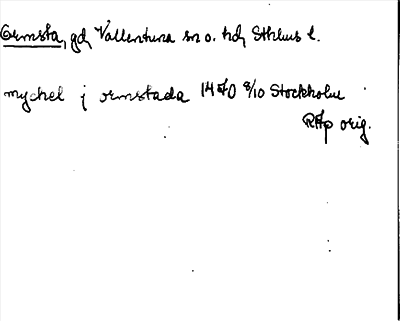 Ormsta, gd, Vallentuna sn o. hd, Sthlms l.
mychel j ormstada 1470 8/10 Stockholm
RAp orig.